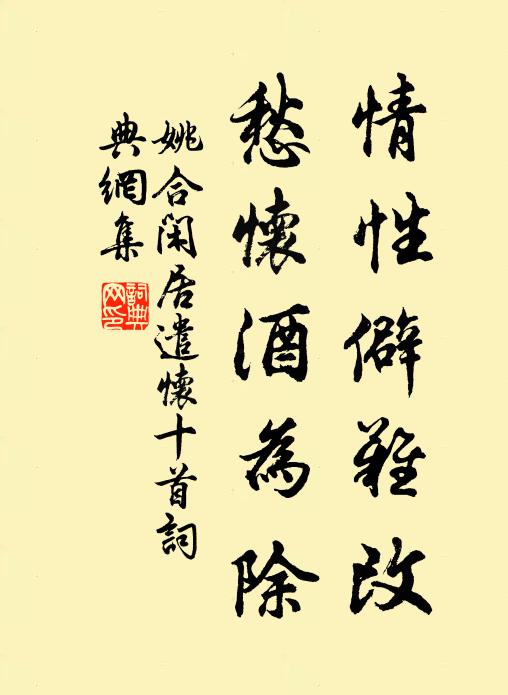 情性僻難改
愁懷酒為除
姚合閑居遣懷十首詞
典網集
詞典
网印